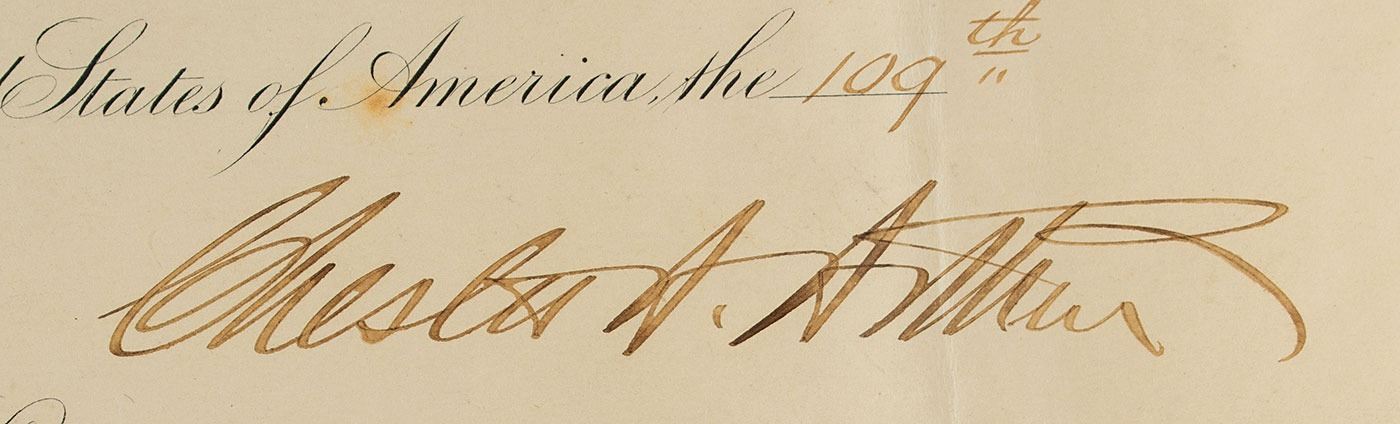 States of America, the 109th
Chester A. Arthur